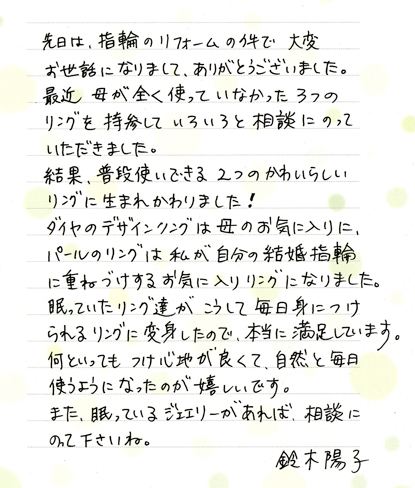 先日は、指輪のリフォームの件で 大変
お世話になりまして、ありがとうございました。
最近 母が全く使っていなかった 3つの
リングを 持参して いろいろと 相談にのって
いただきました。
結果、普段使いできる 2つのかわいらしい
リングに生まれかわりました!
ダイヤのデザインリングは 母のお気に入りに、
パールのリングは 私が自分の結婚指輪
に重ねづけするお気に入りリングになりました。
眠っていたリング達が こうして 毎日身につけ
られるリングに変身したので、本当に満足しています。
何といっても つけ心地が良くて、自然と毎日
使うようになったのが嬉しいです。
また、眠っているジュエリーがあれば、相談に
のって下さいね。
鈴木陽子